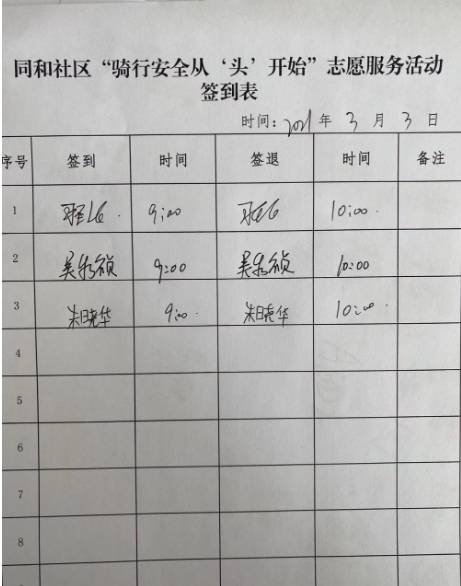 同和社区“骑行安全从‘头’开始”志愿服务活动
签到表
时间：2021 年 3 月 3 日
序号 签到 时间 签退 时间 备注
1 9:00 10:00
2 吴彩祯 9:00 吴彩祯 10:00
3 朱晓华 9:00 朱晓华 10:00
4
5
6
7
8